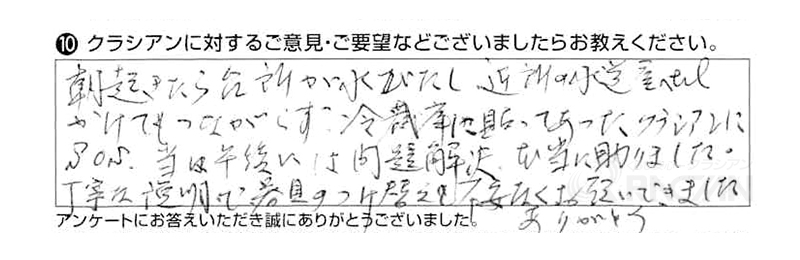 ⑩ クラシアンに対するご意見・ご要望などございましたらお教えください。
朝起きたら台所が水びたし 近所の水道屋へtel
かけてもつながらず 冷蔵庫に貼ってあった、クラシアンに
SOS. 当日午後には問題解決. 本当に助りました。
丁寧な説明で器具のつけ替えも不安なくお願いできました
ありがとう
アンケートにお答えいただき誠にありがとうございました。